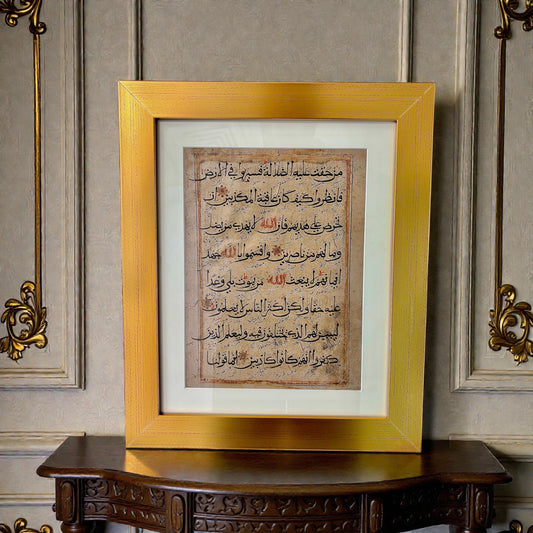 من حقت عليه الضلالة فسيروا في الارض
فانظروا كيف كان عقبة المكذبين ان
تحرص على هديهم فان الله لا يهدي من يضل
وما لهم من ناصرين واقسموا بالله جهد
ايمانهم لا يبعث الله من يموت بلى وعدا
عليه حقا ولكن اكثر الناس لا يعلمون
ليبين لهم الذي يختلفون فيه وليعلم الذين
كفروا انهم كانوا كاذبين انما قولنا